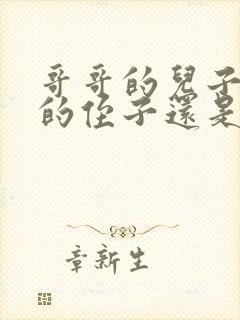 哥哥的兒子
的侄子還是
章新生